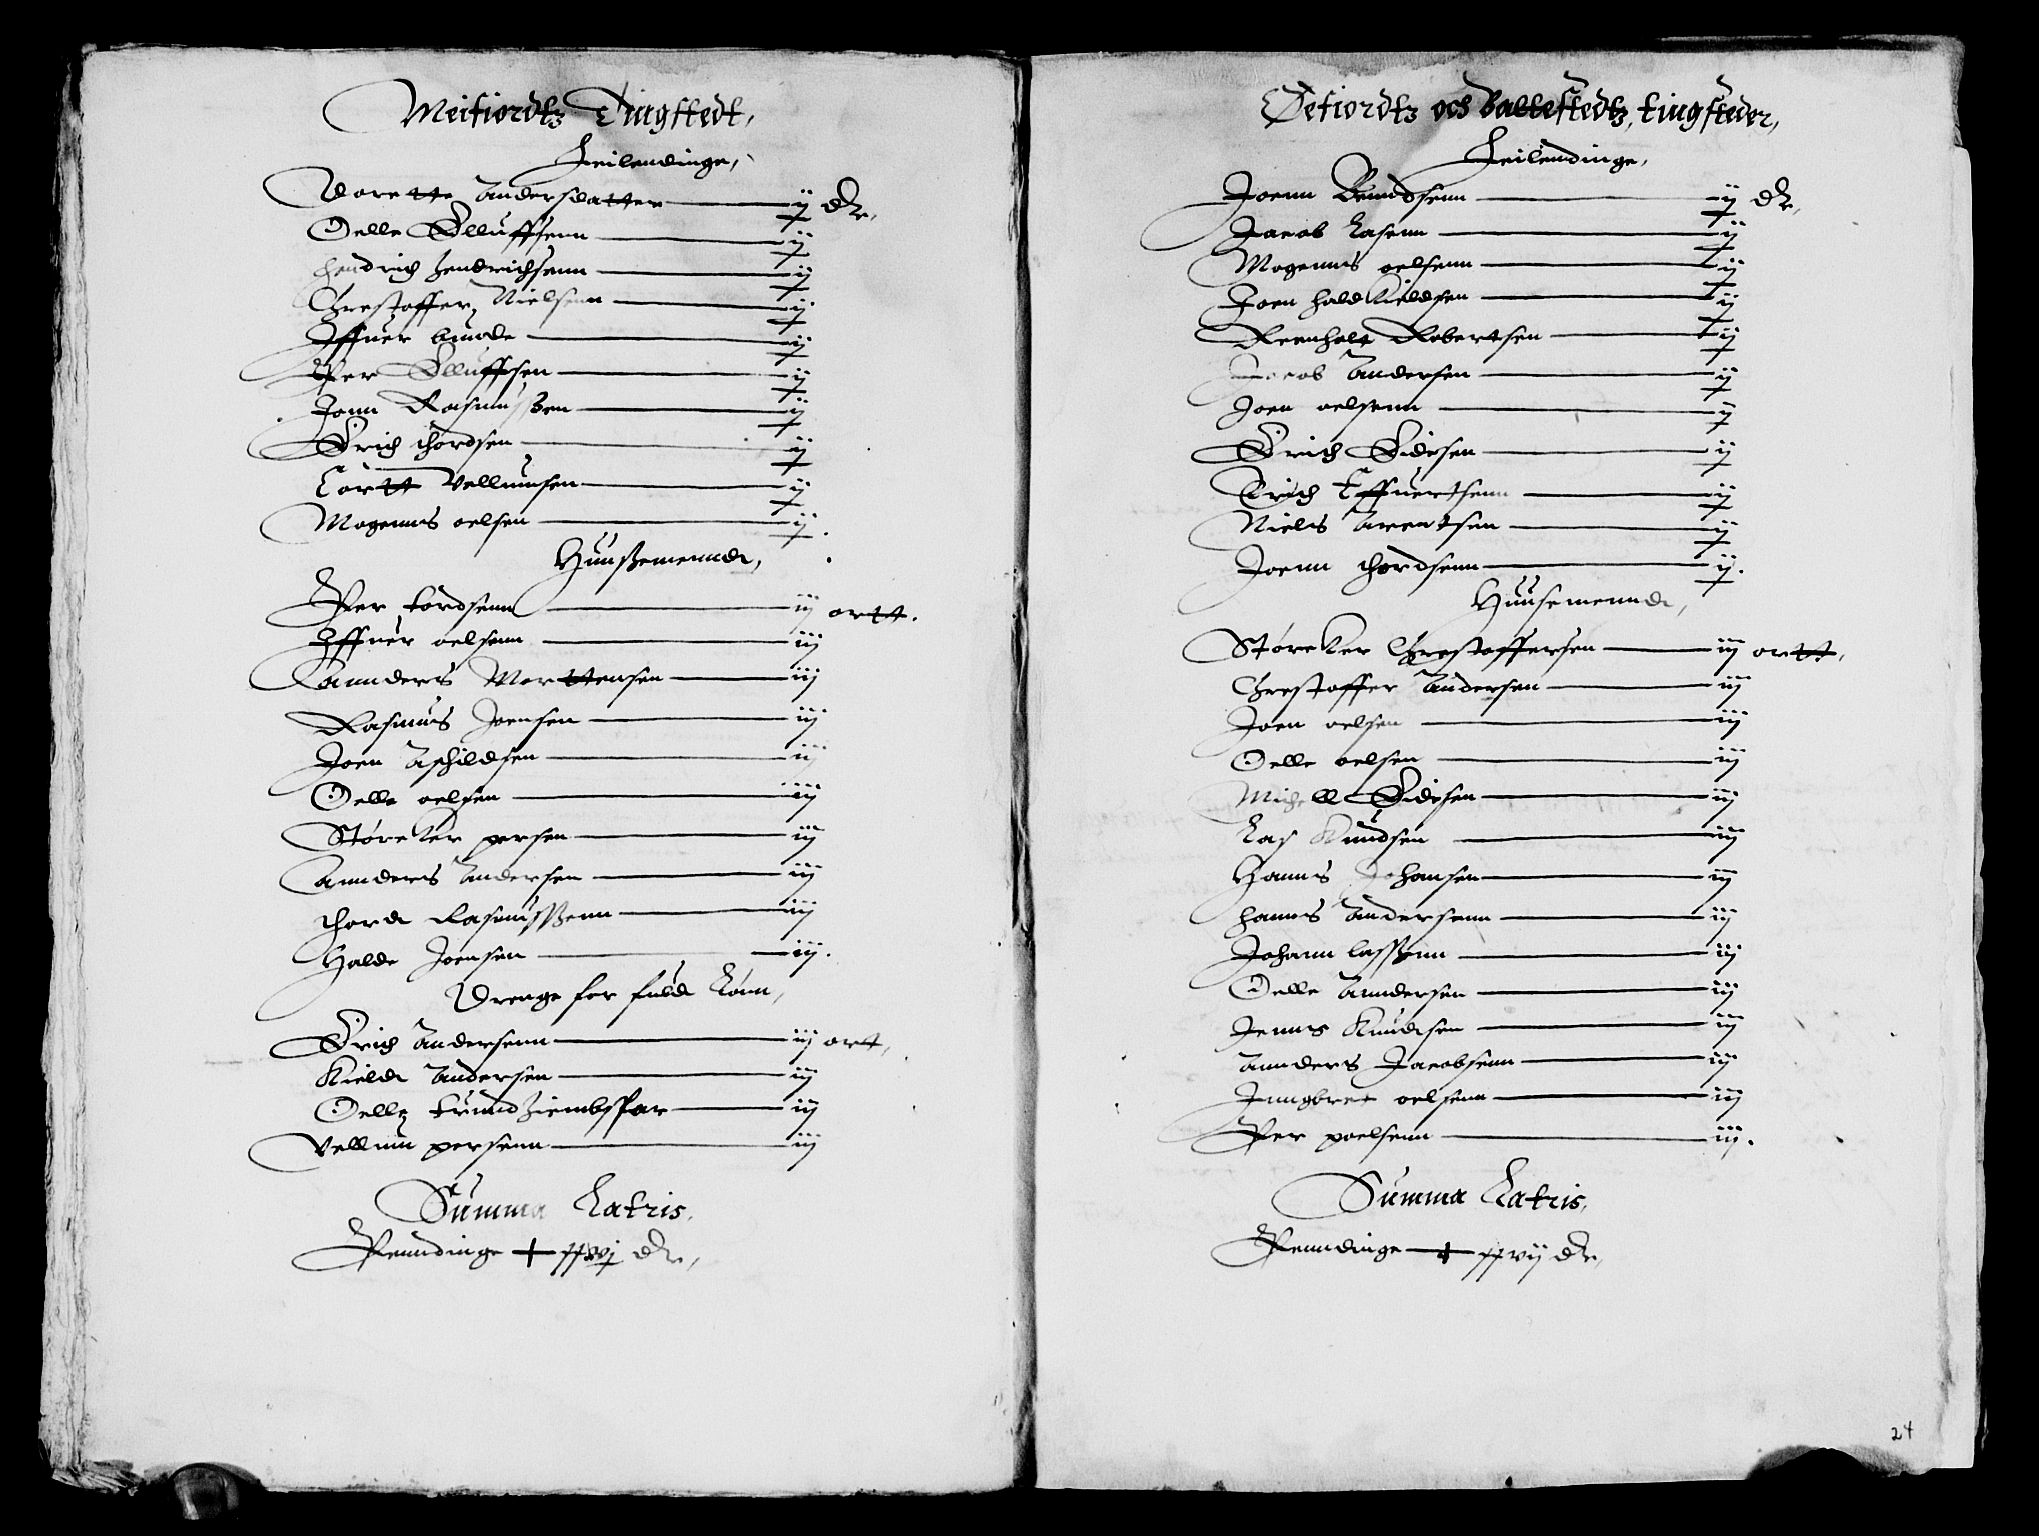 Meifiordtz Tingstedt,
Leilendinge,
Dorette Andersdatter ij dlr,
Oelle Olluffsenn ij
Hendrich Hendrichsenn ij
Chrestoffer Nielsenn ij
Effuer bunde ij
Per Olluffsen ij
Jonn Rasmussen ij
Erich thordsen ij
Cortt Vellumsen ij
Mogenns oelsen ij.
Huussemennd,
Per tordsenn iij ortt.
Effuer oelsenn iij
Annders Morttensen iij
Rasmus Joensen iij
Joen Aschildsen iij
Oelle oelsen iij
Størcker persen iij
Annders Andersen iij
thord Rasmussenn iij
Halde Joensen iij.
Drenge for fuld Lønn,
Erich Andersenn iij ort,
Kield Andersen iij
Oelle iij
Vellum persenn iij
Summa Latris.
Penndinge + xxvj dlr,
Øefiordtz och Ballestedtz tingsteder,
Leilendinge,
Joenn Bundsenn ij dlr,
Jacob Lasenn ij
Mogenns oelsenn ij
Joen haldkieldsen ij
Reenholt Robertsen ij
Jacob Andersen ij
Joen oelsenn ij
Erich Eidesen ij
Erich Effuertsenn ij
Niels Arentsen ij
Joenn thordsenn ij.
Huusemennd,
Størcker Chrestoffersen iij ortt,
Chrestoffer Andersen iij
Joen oelsen iij
Oelle oelsen iij
Michell Eidesen iij
Las Knudsen iij
Hanns Johansen iij
hanns Andersenn iij
Johann lassenn iij
Oelle Anndersen iij
Jenns Knudsen iij
Annders Jacobsenn iij
Jungbret oelsenn iij
Per poelsenn iij.
Summa Latris,
Penndinge + xxvij dlr,
24